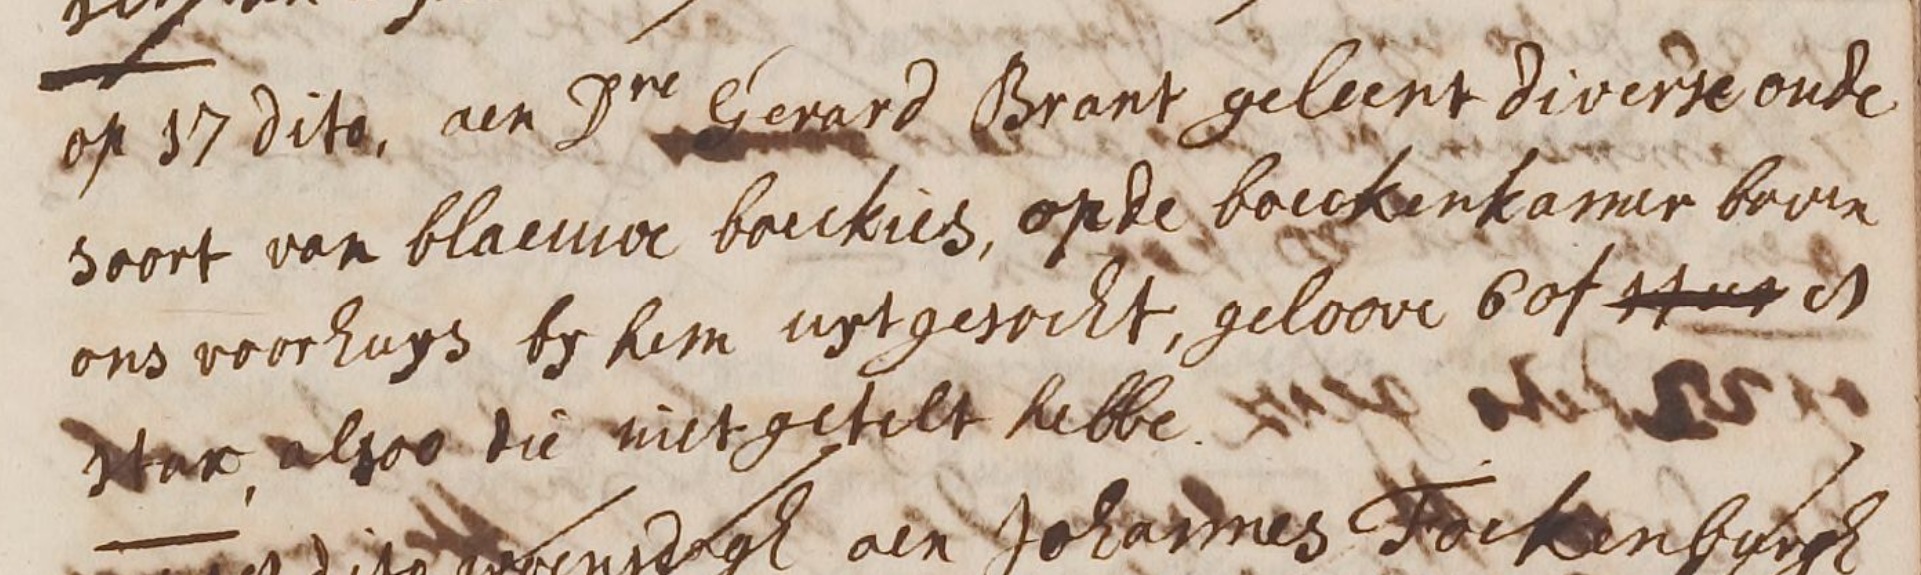 op 17 dito, aen Dne Gerard Brant geleent diverse oude
soort van blaeuwe boeckies, op de boeckenkamer boven
ons voorhuys by hem uytgesocht, geloove 6 of
stux, alsoo die niet getelt hebbe.
dito woensdagh aen Johannes Fockenburgh